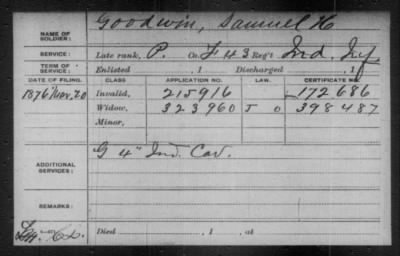 NAME OF SOLDIER: Goodwin, Samuel H
SERVICE: Late rank, P. Co. F 43 Reg't Ind. Inf
TERM OF SERVICE: Enlisted , 1 Discharged , 1
DATE OF FILING. CLASS. APPLICATION NO. LAW. CERTIFICATE NO.
1876 Mar. 20 Invalid, 215916 172686
Widow, 323960 J O 398487
Minor,
ADDITIONAL SERVICES: G 4" Ind. Cav.
REMARKS:
Died , 1 , at